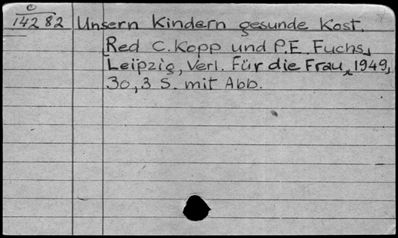 c
14282
Unsern Kindern gesunde Kost.
[Red C. Kopp und P.E. Fuchs]
Leipzig, Verl. für die Frau, 1949,
30,3 S. mit Abb.